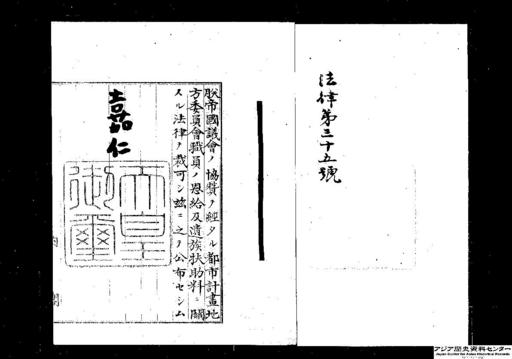 法律第三十五號
朕帝國議會ノ協贊ヲ經タル都市計畫地
方委員會職員ノ恩給及遺族扶助料ニ關
スル法律ヲ裁可シ茲ニ之ヲ公布セシム
嘉仁
天皇
御璽
アジア歴史資料センター
Japan Center for Asian Historical Records